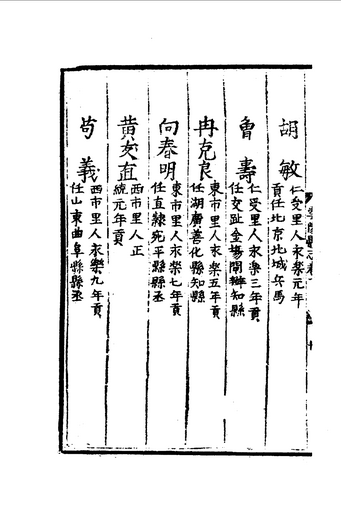 胡敏
仁受里人永樂元年
貢任北京北城兵馬
魯壽
仁受里人永樂三年貢
任交趾金場閘辦知縣
冉克良
東市里人永樂五年貢
任湖廣善化縣知縣
向春明
東市里人永樂七年貢
任直隸宛平縣縣丞
黄友直
西市里人正
統元年貢
茍義
西市里人永樂九年貢
任山東曲阜縣縣丞